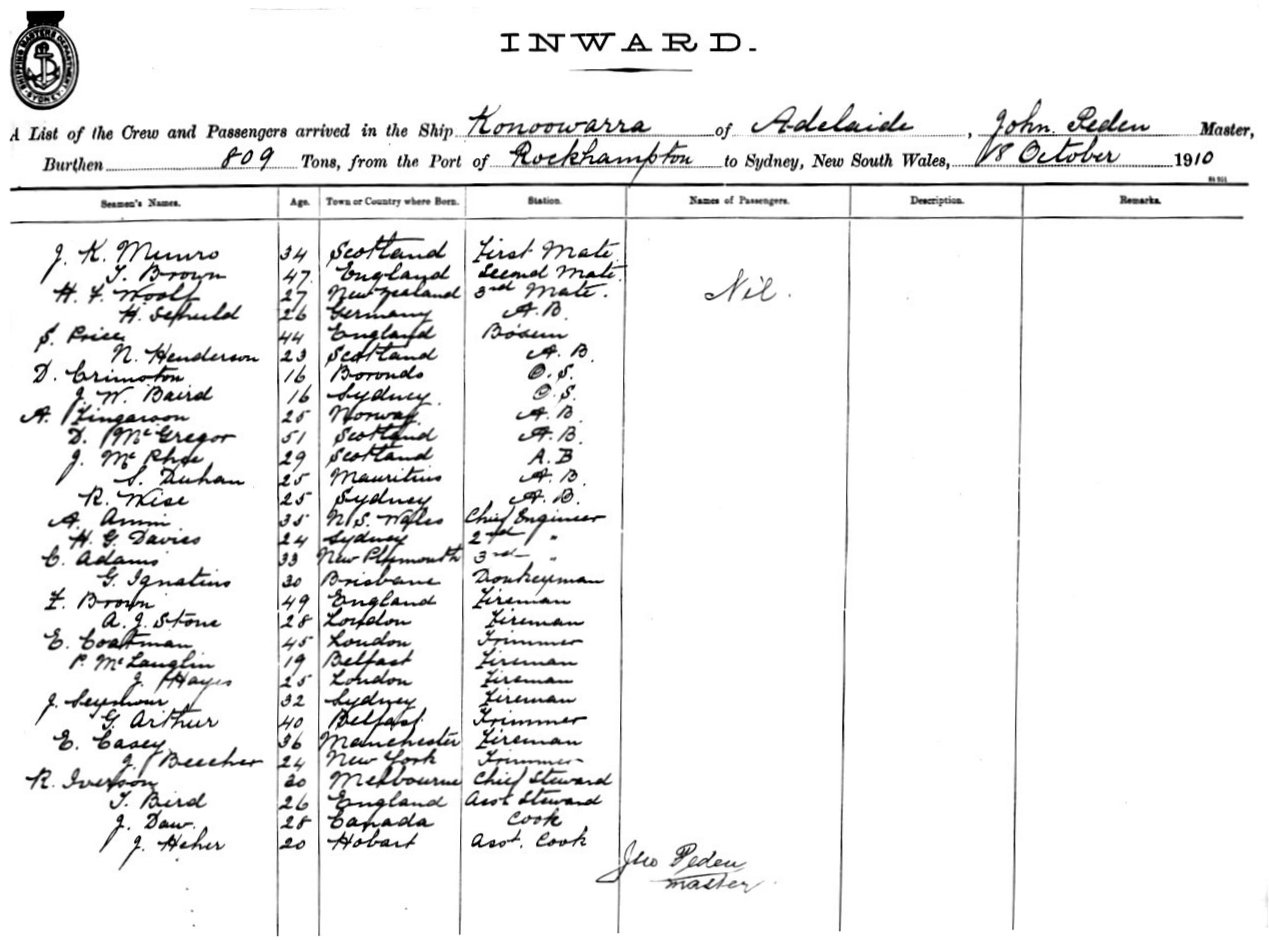 SHIPPING MASTERS DEPARTMENT SYDNEY
INWARD.
A List of the Crew and Passengers arrived in the Ship Konoowarra of Adelaide, John Peden Master,
Burthen 809 Tons, from the Port of Rockhampton to Sydney, New South Wales, 18 October 1910
Seamen's Names. Age. Town or Country where Born. Station. Names of Passengers. Description. Remarks.
J. K. Munro 34 Scotland First Mate
T. Brown 47 England Second Mate
H. F. Woolf 27 New Zealand 3rd Mate. Nil.
H. Schuld 26 Germany A. B.
S. Price 44 England Bosun
N. Henderson 23 Scotland A. B.
D. 16 O. S.
J. W. Baird 16 Sydney O. S.
A. 25 Norway A. B.
D. McGregor 51 Scotland A. B.
J. McPhee 29 Scotland A. B
S. Duhan 25 Mauritius A. B.
R. Wise 25 Sydney A. B.
A. 35 N. S. Wales Chief Engineer
H. G. Davies 24 Sydney 2nd "
C. Adams 33 New Plymouth 3rd "
G. Ignatius 30 Brisbane Donkeyman
F. Brown 49 England Fireman
A. J. Stone 28 London Fireman
E. Coatman 45 London Trimmer
P. McLauglin 19 Belfast Fireman
J. Hayes 25 London Fireman
J. Seymour 32 Sydney Fireman
G. Arthur 40 Belfast Trimmer
E. Casey 36 Manchester Fireman
J. Beecher 24 New York Trimmer
R. Iverson 30 Melbourne Chief Steward
T. Bird 26 England Asst Steward
J. Daw. 28 Canada Cook
J. Heher 20 Hobart Asst. Cook
Jno Peden
master